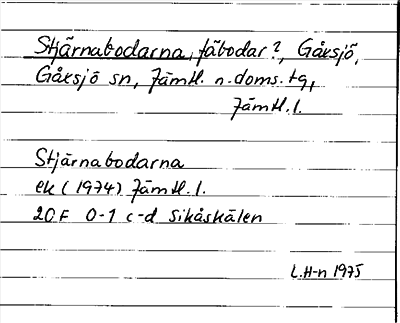 Stjärnabodarna, fäbodar?, Gåxsjö,
Gåxsjö sn, Jämtl. n. doms. tg,
Jämtl. l.
Stjärnabodarna
ek (1974) Jämtl. l.
20F 0-1 c-d Sikåskälen
L.H-n 1975